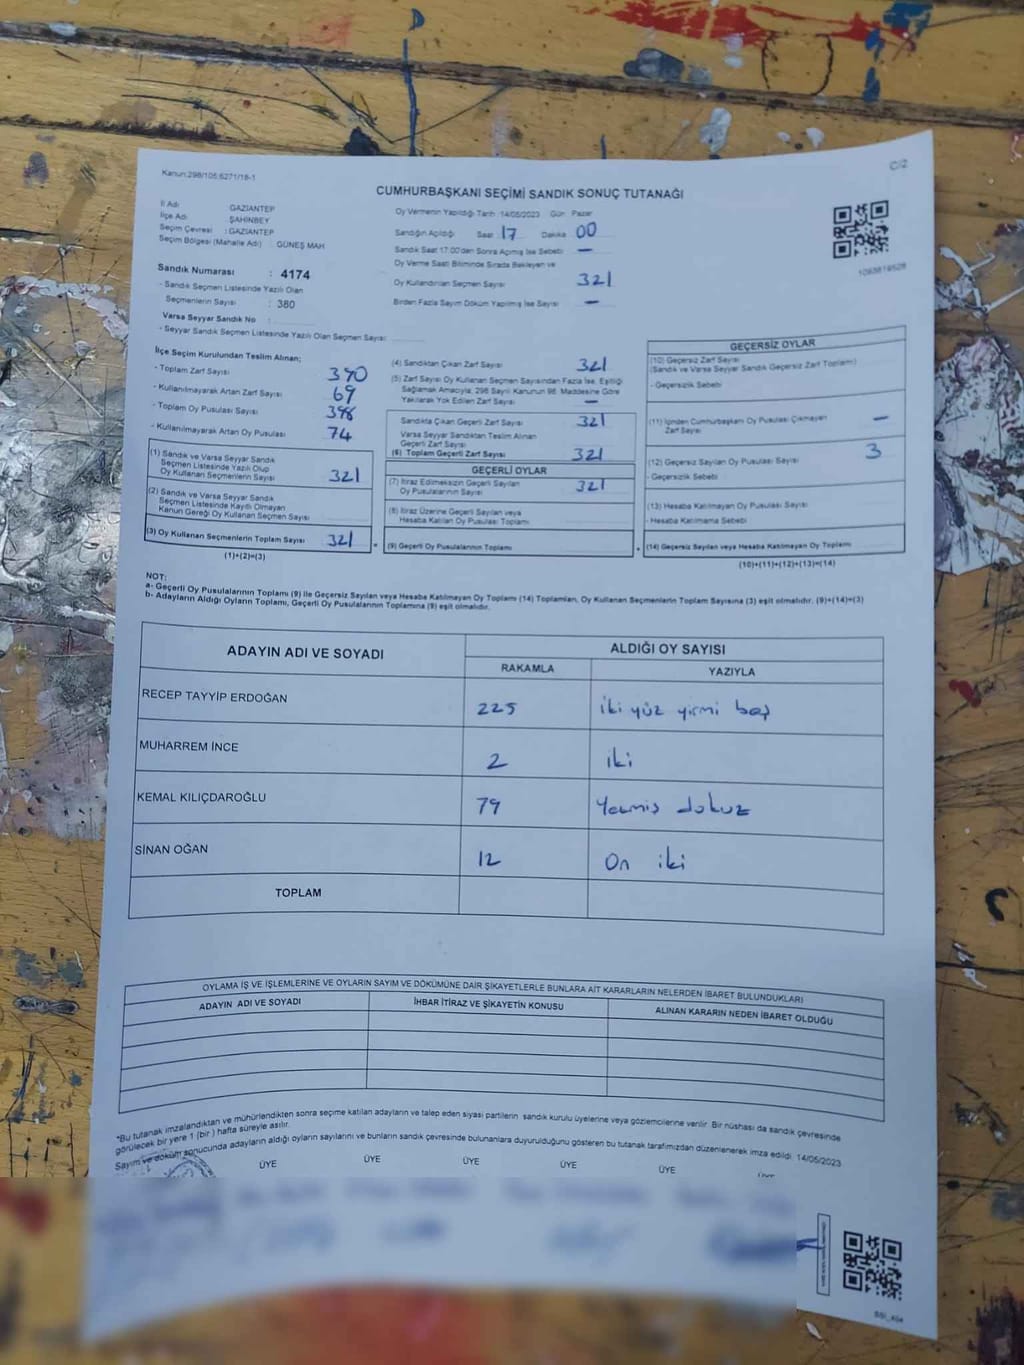 Kanun:298/105;6271/18-1
C/2
CUMHURBAŞKANI SEÇİMİ SANDIK SONUÇ TUTANAĞI
İl Adı : GAZİANTEP
İlçe Adı : ŞAHİNBEY
Seçim Çevresi : GAZİANTEP
Seçim Bölgesi (Mahalle Adı) : GÜNEŞ MAH
Sandık Numarası : 4174
- Sandık Seçmen Listesinde Yazılı Olan
Seçmenlerin Sayısı : 380
Varsa Seyyar Sandık No :
- Seyyar Sandık Seçmen Listesinde Yazılı Olan Seçmen Sayısı:
Oy Vermenin Yapıldığı Tarih :14/05/2023 Gün: Pazar
Sandığın Açıldığı Saat :17 Dakika 00
Sandık Saat 17:00'den Sonra Açılmış İse Sebebi: -
Oy Verme Saati Bitiminde Sırada Bekleyen ve
Oy Kullandırılan Seçmen Sayısı 321
Birden Fazla Sayım Döküm Yapılmış İse Sayısı: -
İlçe Seçim Kurulundan Teslim Alınan;
- Toplam Zarf Sayısı : 390
- Kullanılmayarak Artan Zarf Sayısı : 69
- Toplam Oy Pusulası Sayısı : 398
- Kullanılmayarak Artan Oy Pusulası : 74
(1) Sandık ve Varsa Seyyar Sandık
Seçmen Listesinde Yazılı Olup
Oy Kullanan Seçmenlerin Sayısı : 321
(2) Sandık ve Varsa Seyyar Sandık
Seçmen Listesinde Kayıtlı Olmayan
Kanun Gereği Oy Kullanan Seçmen Sayısı :
(3) Oy Kullanan Seçmenlerin Toplam Sayısı : 321
(1)+(2)=(3)
(4) Sandıktan Çıkan Zarf Sayısı : 321
(5) Zarf Sayısı Oy Kullanan Seçmen Sayısından Fazla İse, Eşitliği
Sağlamak Amacıyla; 298 Sayılı Kanunun 98. Maddesine Göre
Yakılarak Yok Edilen Zarf Sayısı : -
Sandıkta Çıkan Geçerli Zarf Sayısı : 321
Varsa Seyyar Sandıktan Teslim Alınan
Geçerli Zarf Sayısı
(6) Toplam Geçerli Zarf Sayısı : 321
GEÇERLİ OYLAR
(7) İtiraz Edilmeksizin Geçerli Sayılan
Oy Pusulalarının Sayısı : 321
(8) İtiraz Üzerine Geçerli Sayılan veya
Hesaba Katılan Oy Pusulası Toplamı :
(9) Geçerli Oy Pusulalarının Toplamı
GEÇERSİZ OYLAR
(10) Geçersiz Zarf Sayısı
(Sandık ve Varsa Seyyar Sandık Geçersiz Zarf Toplamı)
- Geçersizlik Sebebi :
(11) İçinden Cumhurbaşkanı Oy Pusulası Çıkmayan
Zarf Sayısı : -
(12) Geçersiz Sayılan Oy Pusulası Sayısı : 3
- Geçersizlik Sebebi :
(13) Hesaba Katılmayan Oy Pusulası Sayısı
- Hesaba Katılmama Sebebi :
(14) Geçersiz Sayılan veya Hesaba Katılmayan Oy Toplamı
(10)+(11)+(12)+(13)=(14)
NOT:
a- Geçerli Oy Pusulalarının Toplamı (9) ile Geçersiz Sayılan veya Hesaba Katılmayan Oy Toplamı (14) Toplamları, Oy Kullanan Seçmenlerin Toplam Sayısına (3) eşit olmalıdır. (9)+(14)=(3)
b- Adayların Aldığı Oyların Toplamı, Geçerli Oy Pusulalarının Toplamına (9) eşit olmalıdır.
ADAYIN ADI VE SOYADI
ALDIĞI OY SAYISI
RAKAMLA YAZIYLA
RECEP TAYYİP ERDOĞAN 225 iki yüz yirmi beş
MUHARREM İNCE 2 iki
KEMAL KILIÇDAROĞLU 79 Yetmiş dokuz
SİNAN OĞAN 12 On iki
TOPLAM
OYLAMA İŞ VE İŞLEMLERİNE VE OYLARIN SAYIM VE DÖKÜMÜNE DAİR ŞİKAYETLERLE BUNLARA AİT KARARLARIN NELERDEN İBARET BULUNDUKLARI
ADAYIN ADI VE SOYADI İHBAR İTİRAZ VE ŞİKAYETİN KONUSU ALINAN KARARIN NEDEN İBARET OLDUĞU
*Bu tutanak imzalandıktan ve mühürlendikten sonra seçime katılan adayların ve talep eden siyasi partilerin sandık kurulu üyelerine veya gözlemcilerine verilir. Bir nüshası da sandık çevresinde
görülecek bir yere 1 (bir) hafta süreyle asılır.
Sayım ve döküm sonucunda adayların aldığı oyların sayılarını ve bunların sandık çevresinde bulunanlara duyurulduğunu gösteren bu tutanak tarafımızdan düzenlenerek imza edildi. 14/05/2023
ÜYE ÜYE ÜYE ÜYE ÜYE